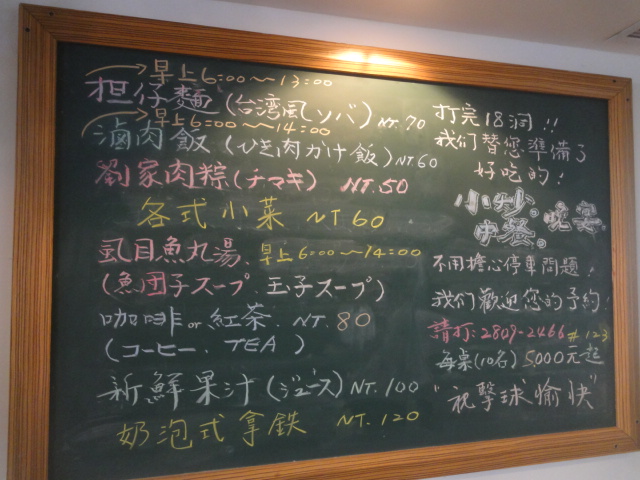 早上6:00～13:00
担仔麵(台湾風ソバ)NT.70
早上6:00～14:00
滷肉飯(ひき肉かけ飯)NT60
劉家肉粽(チマキ) NT.50
各式小菜 NT60
虱目魚丸湯、早上6:00～14:00
(魚団子スープ、玉子スープ)
咖啡or紅茶. NT.80
(コーヒー、TEA)
新鮮果汁(ジュース)NT.100
奶泡式拿鉄 NT.120
打完18洞!!
我们替您準備了
好吃的!
小炒。晚宴。
中餐。
不用擔心停車問題!
我们歡迎您的予約!
請打:2809-2466#123
每桌(10名)5,000元起
"祝擊球愉快"